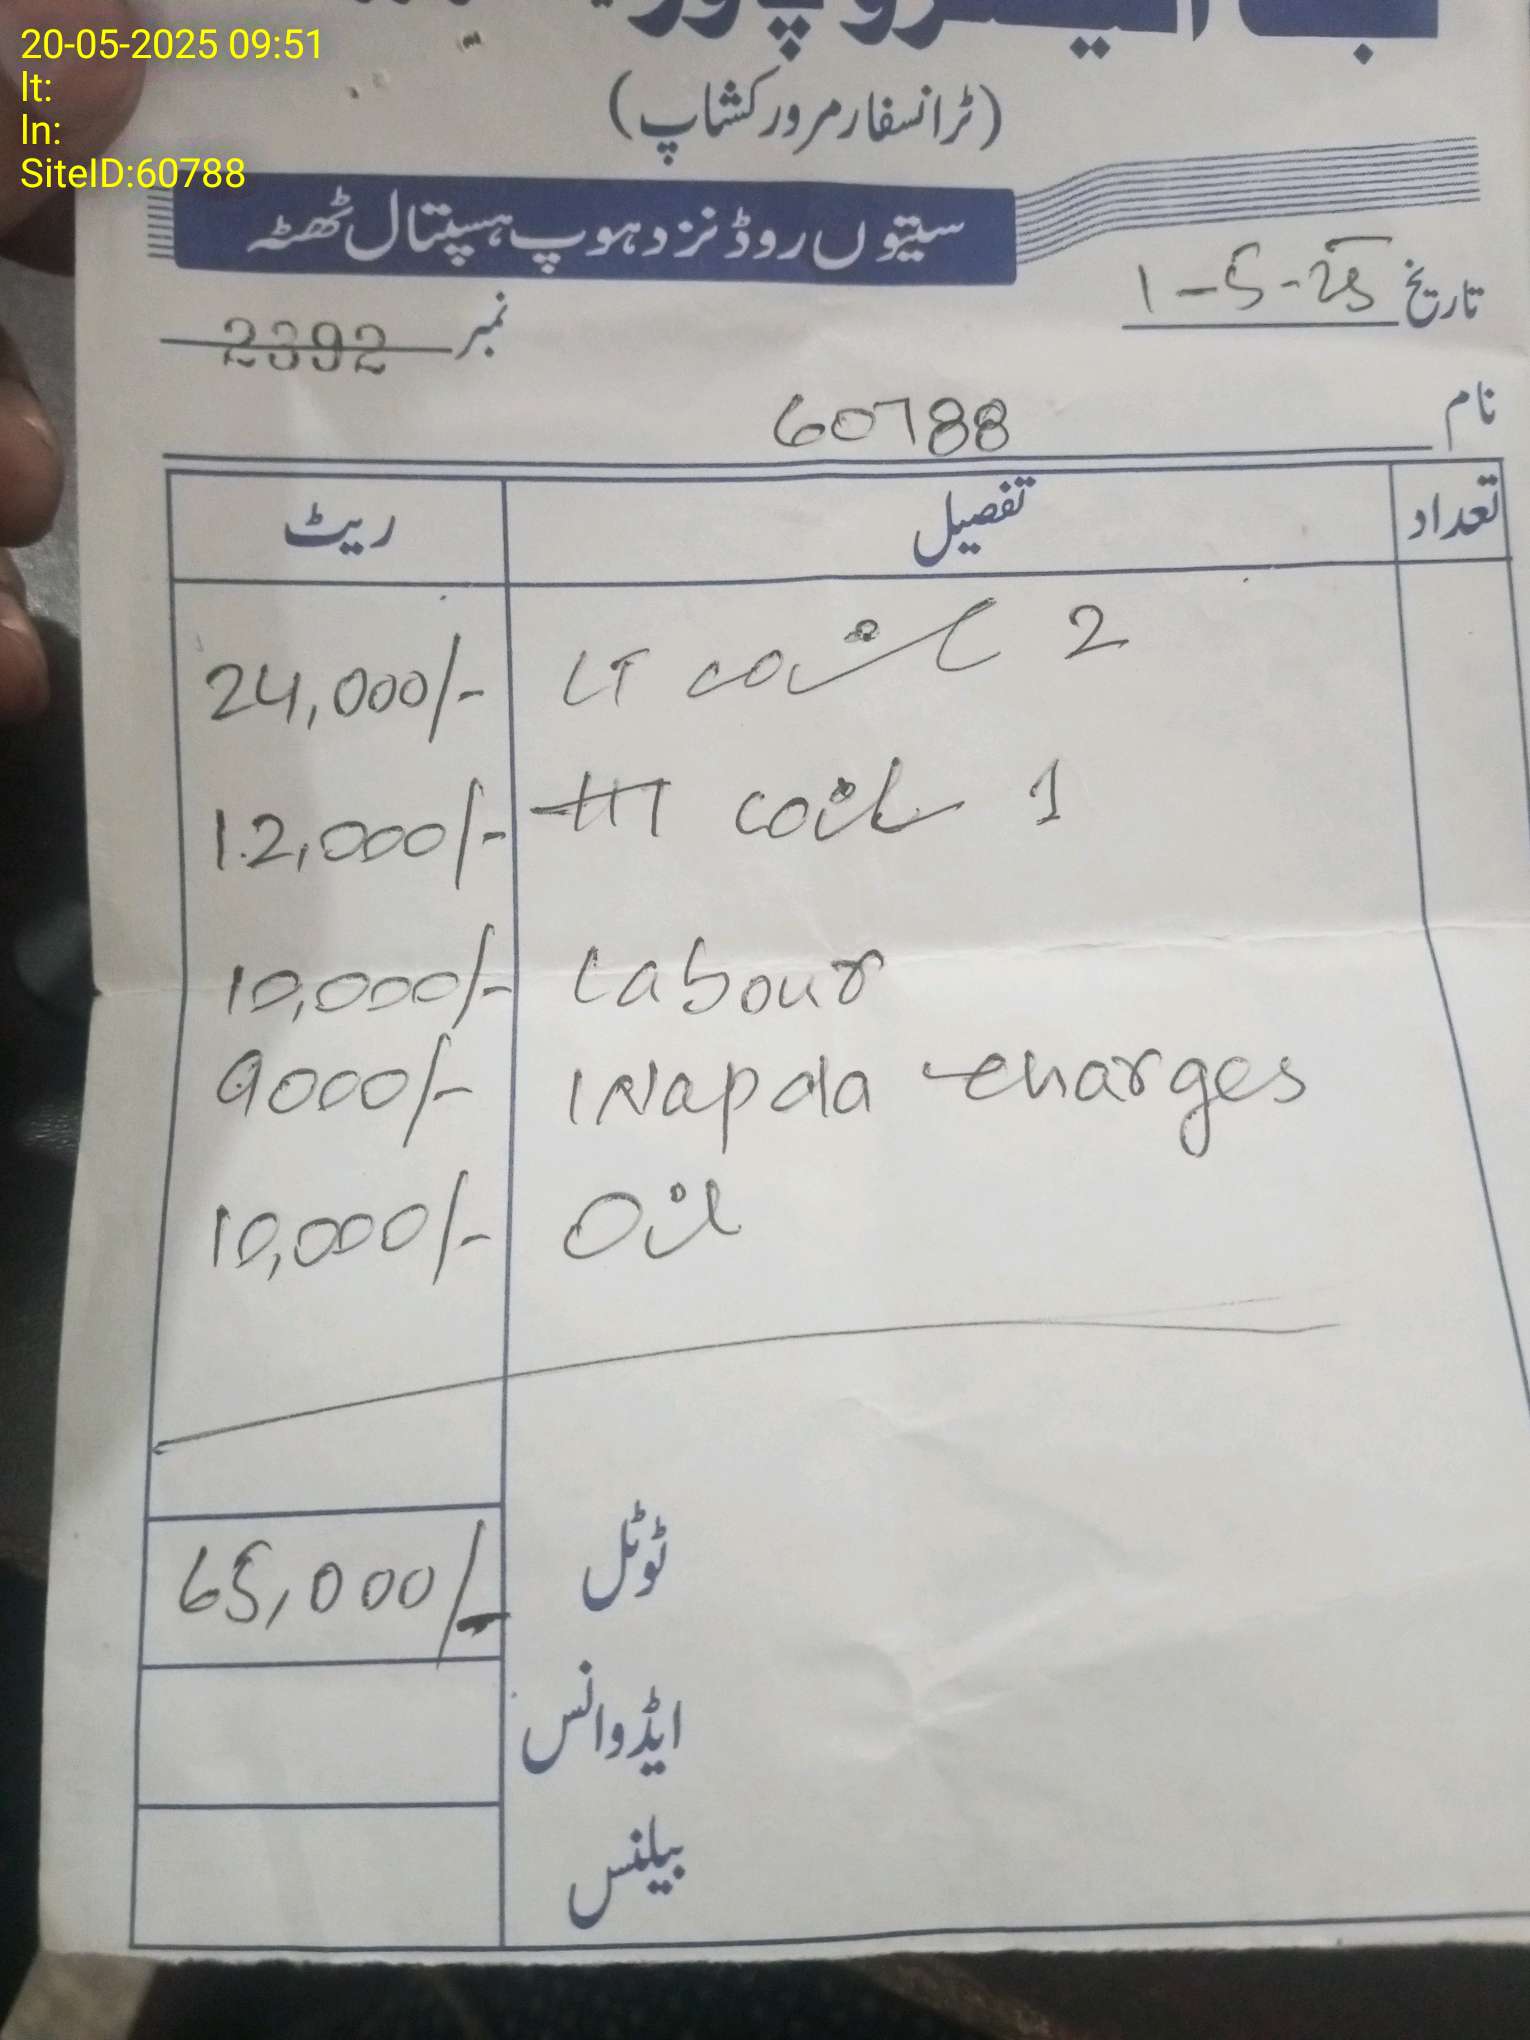 20-05-2025 09:51
lt:
ln:
SiteID:60788
(ٹرانسفارمر ورکشاپ)
ستیوں روڈ نزد ہوپ ہسپتال ٹھٹہ
تاریخ 1-5-25
نمبر 2392
نام 60788
تعداد تفصیل ریٹ
LT coil 2 24,000/-
HT coil 1 12,000/-
Labour 10,000/-
Wapda charges 9000/-
Oil 10,000/-
ٹوٹل 65,000/-
ایڈوانس
بیلنس